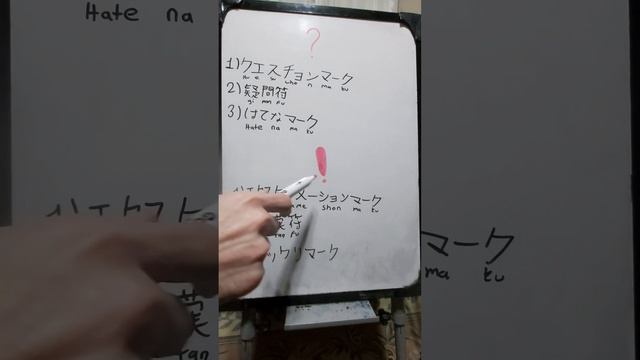 Hate na
?
1)クエスチョンマーク
ku e su cho n ma ku
2)疑問符
gi mon fu
3)はてなマーク
Hate na ma ku
!
1)エクス メーションマーク
me shon ma ku
符
fu
ックリマーク
マーク
ma ku